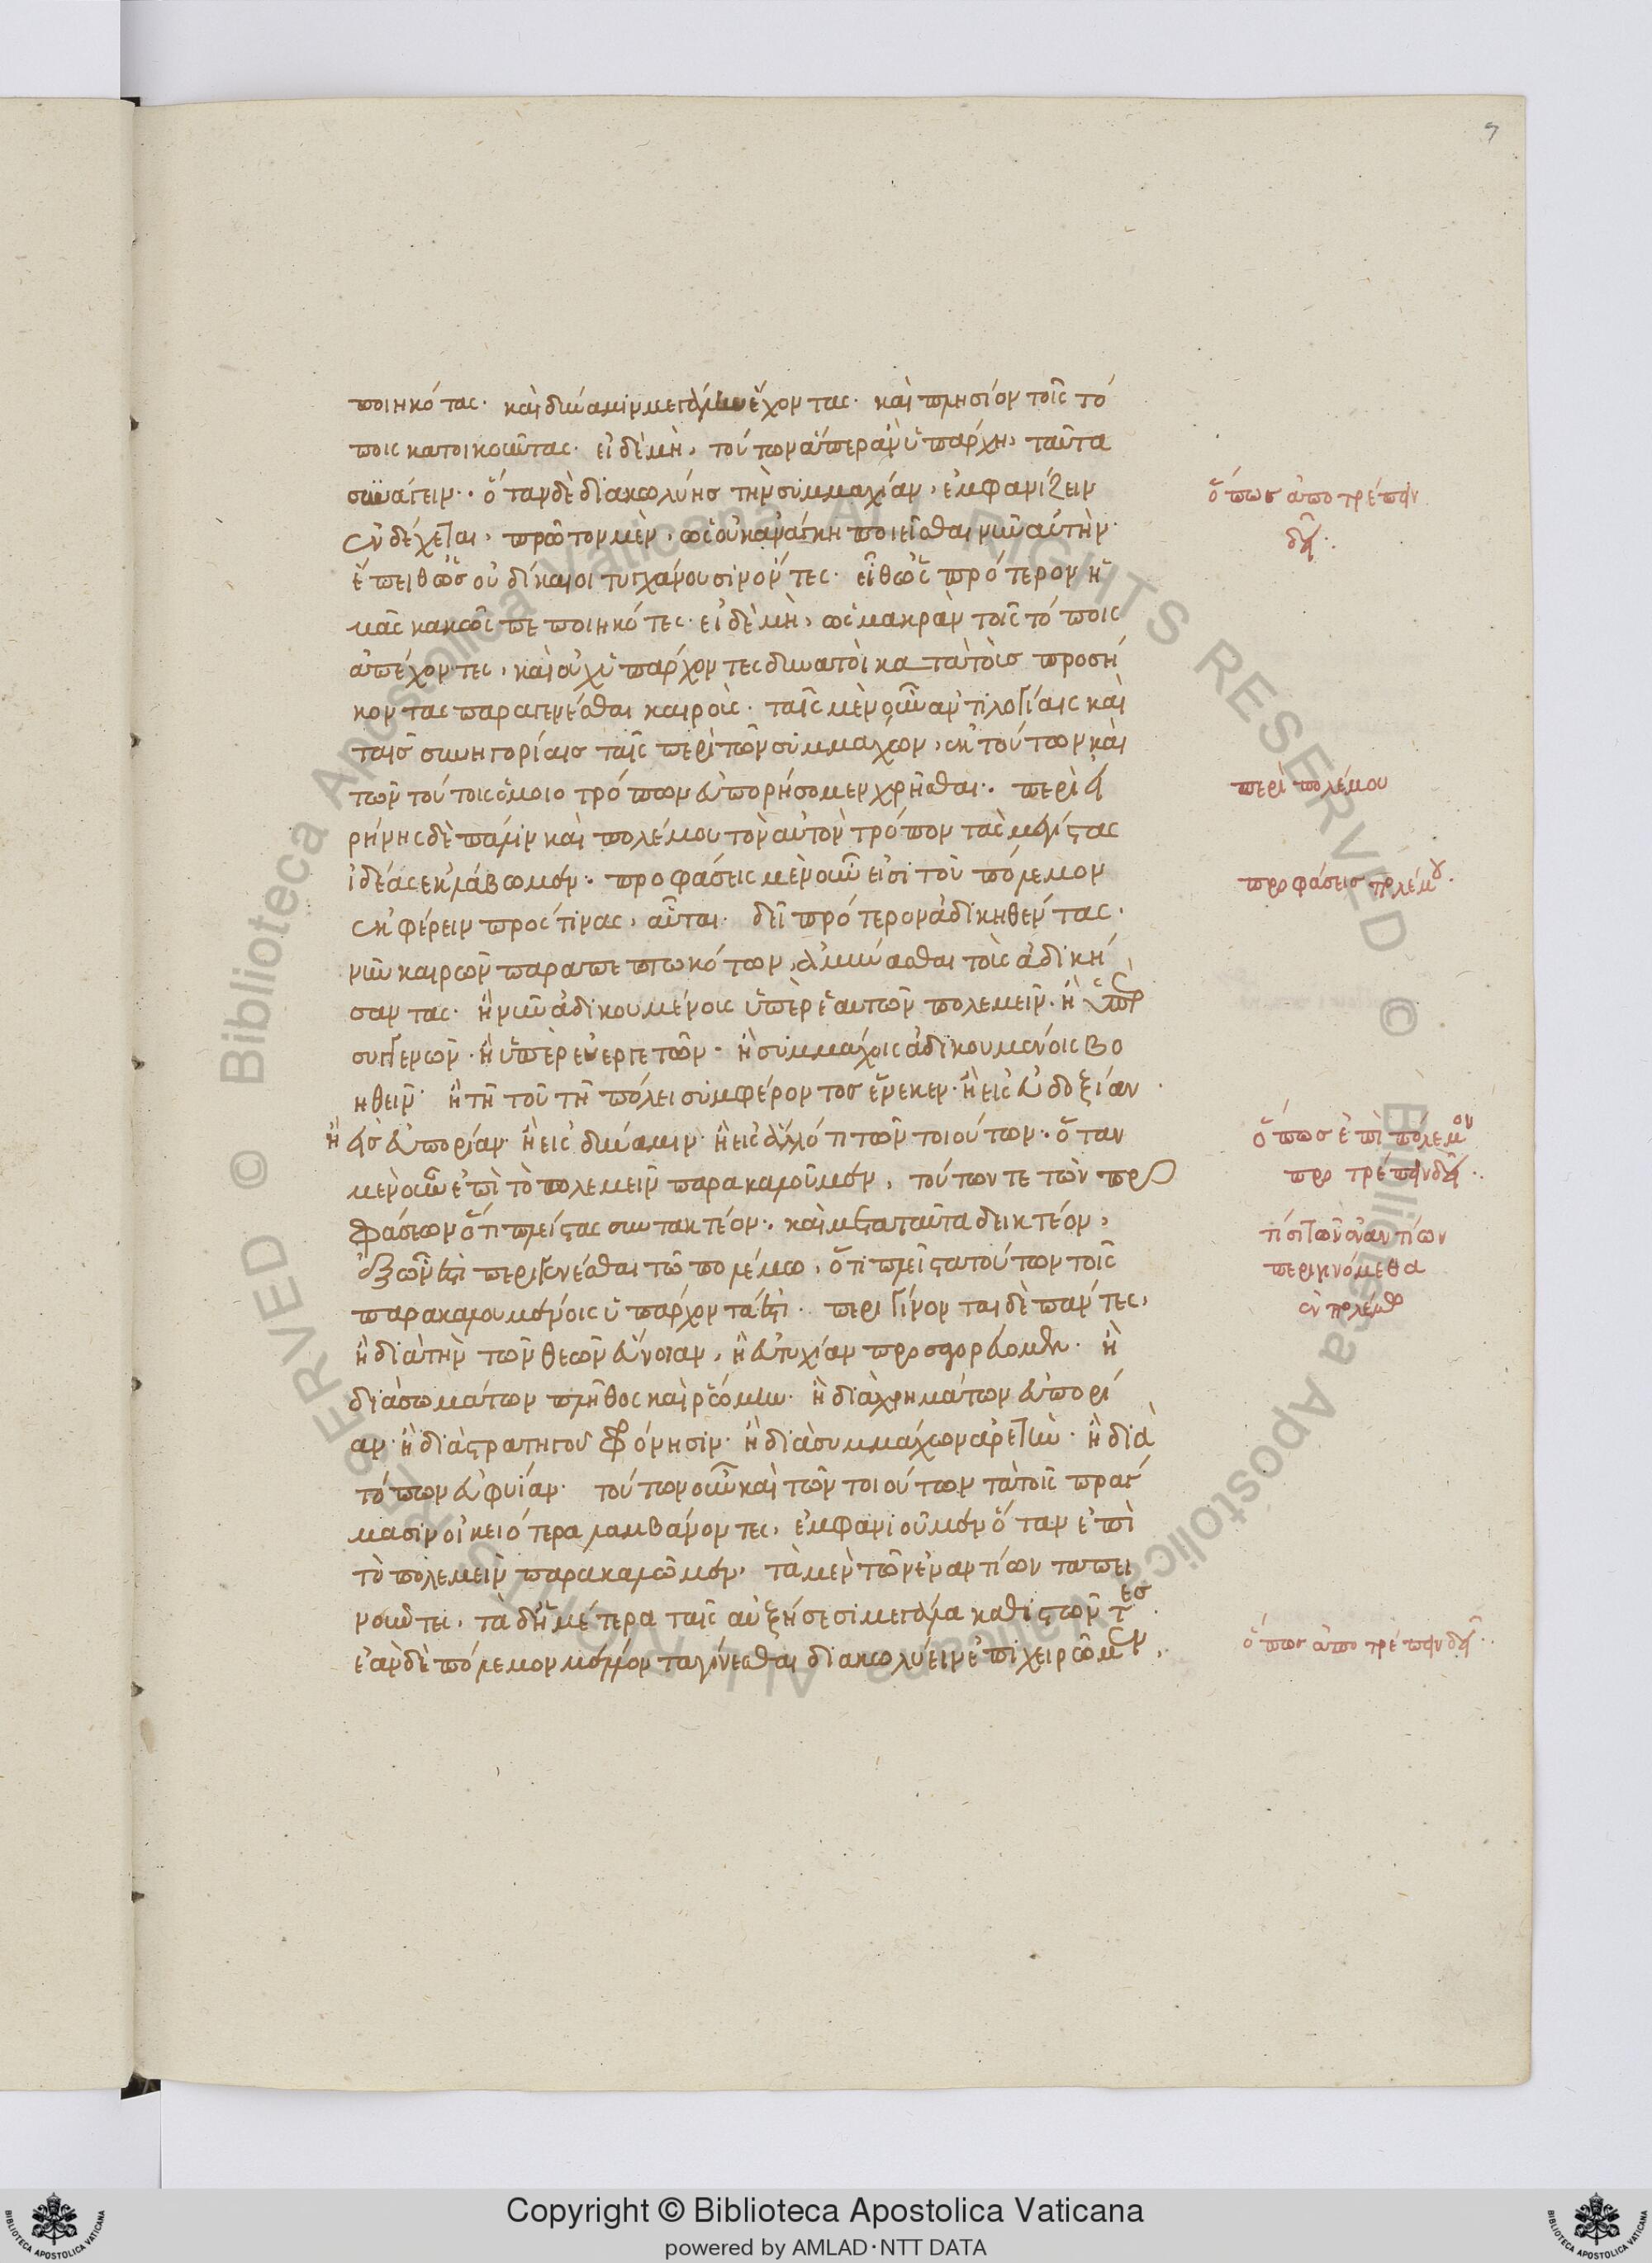 7
ποιηκότας. καὶ δύναμιν μεγάλην ἔχοντας. καὶ πλησίον τοῖς τό
ποις κατοικοῦντας. εἰ δὲ μὴ, τούτων ἅπερ ἂν ὑπάρχη, ταῦτα
συνάγειν. ὅταν δὲ διακωλύης τὴν συμμαχίαν, ἐμφανίζειν
ἐνδέχεται, πρῶτον μὲν, ὡς οὐκ ἀνάγκη ποιεῖσθαι νῦν αὐτὴν.
ἔπειθ ὡς οὐ δίκαιοι τυγχάνουσιν ὄντες. εἶθ ὡς πρότερον ἡ
μᾶς κακῶς πεποιηκότες. εἰ δὲ μὴ, ὡς μακρὰν τοῖς τόποις
ἀπέχοντες, καὶ οὐχ ὑπάρχοντες δυνατοὶ κατὰ τοὺς προσή
κοντας παραγενέσθαι καιρούς. ταῖς μὲν οὖν ἀντιλογίαις καὶ
ταῖς συνηγορίαις ταῖς περὶ τῶν συμμάχων, ἐκ τούτων καὶ
τῶν τούτοις ὁμοιοτρόπων εὐπορήσομεν χρῆσθαι. περὶ εἰ
ρήνης δὲ πάλιν καὶ πολέμου τὸν αὐτὸν τρόπον τὰς μεγίστας
ἰδέας ἐκλάβωμεν. προφάσεις μὲν οὖν εἰσὶ τοῦ πόλεμον
ἐκφέρειν πρός τινας, αὗται. δεῖ πρότερον ἀδικηθέντας.
νῦν καιρῶν παραπεπτωκότων, ἀμύνασθαι τοὺς ἀδική
σαντας. ἢ νῦν ἀδικουμένους ὑπὲρ ἑαυτῶν πολεμεῖν. ἢ ὑπὲρ
συγγενῶν. ἢ ὑπὲρ εὐεργετῶν. ἢ συμμάχοις ἀδικουμένοις βο
ηθεῖν. ἢ τῆ τοῦ τῆ πόλει συμφέροντος ἕνεκεν. ἢ εἰς εὐδοξίαν
ἢ εἰς εὐπορίαν. ἢ εἰς δύναμιν. ἢ εἰς ἄλλό τι τῶν τοιούτων. ὅταν
μὲν οὖν ἐπὶ τὸ πολεμεῖν παρακαλοῦμεν, τούτων τε τῶν προ
φάσεων ὅτι πλείστας συνακτέον. καὶ μετὰ ταῦτα δεικτέον,
ἐξ ὧν ἐστὶ περιγενέσθαι τῶ πολέμω, ὅτι πλεῖστα τούτων τοῖς
παρακαλουμένοις ὑπάρχοντά ἐστι. περιγίνονται δὲ πάντες,
ἢ διὰ τὴν τῶν θεῶν εὔνοιαν, ἢ εὐτυχίαν προσαγορεύομεν. ἢ
διὰ σωμάτων πλῆθος καὶ ῥώμην. ἢ διὰ χρημάτων εὐπορί
αν. ἢ διὰ στρατηγοῦ φρόνησιν. ἢ διὰ συμμάχων ἀρετὴν. ἢ διὰ
τόπων εὐφυίαν. τούτων οὖν καὶ τῶν τοιούτων τὰ τοῖς πράγ
μασιν οἰκειότερα λαμβάνοντες, ἐμφανιοῦμεν ὅταν ἐπὶ
τὸ πολεμεῖν παρακαλῶμεν, τὰ μὲν τῶν ἐναντίων ταπει
νοῦντες, τὰ δ ἡμέτερα ταῖς αὐξήσεσι μεγάλα καθιστῶντες.
ἐὰν δὲ πόλεμον μέλλοντα γίνεσθαι διακωλύειν ἐπιχειρῶμεν,
ὅπως ἀποτρέπειν
δεῖ.
περὶ πολέμου
προφάσεις πολέμου.
ὅπως ἐπὶ πόλεμον
προτρέπειν δεῖ.
τίσι τῶν ἐναντίων
περιγινόμεθα
ἐν πολέμω
ὅπως ἀποτρέπειν δεῖ.
© Biblioteca Apostolica Vaticana ALL RIGHTS RESERVED © Biblioteca Apostolica Vaticana ALL RIGHTS RESERVED
Copyright © Biblioteca Apostolica Vaticana
powered by AMLAD·NTT DATA
BIBLIOTECA APOSTOLICA VATICANA
BIBLIOTECA APOSTOLICA VATICANA